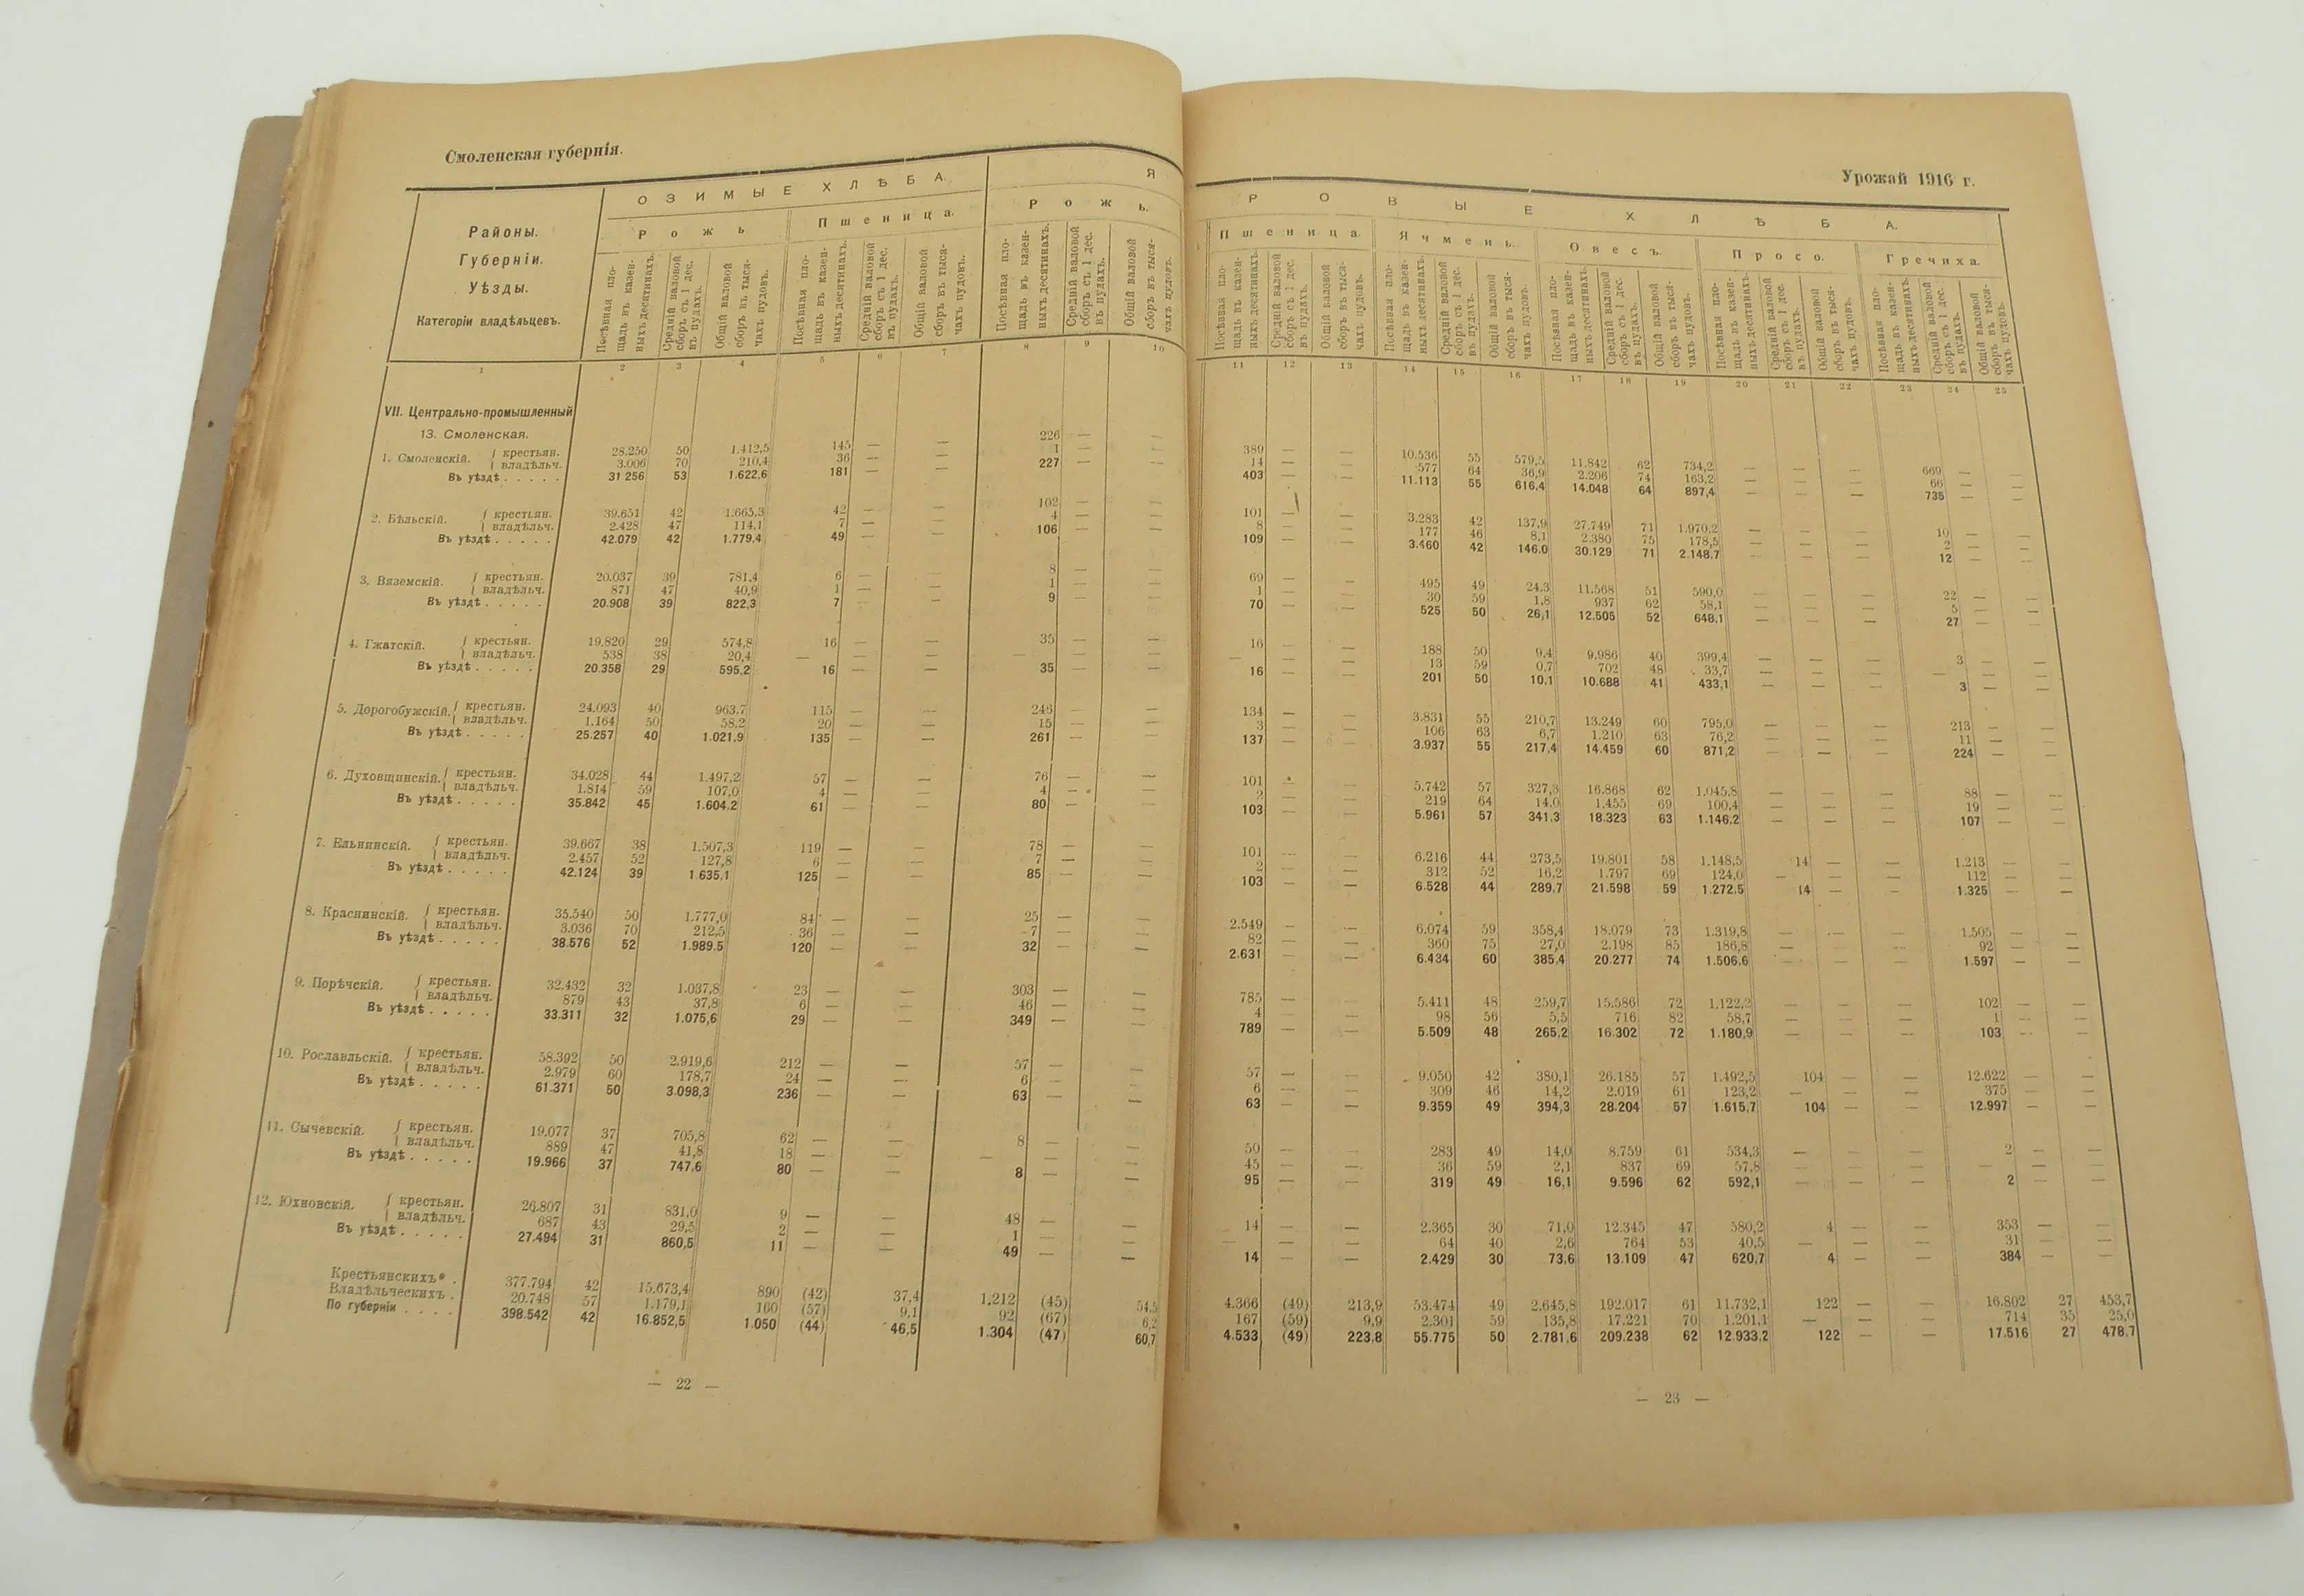 Смоленская губернія.
О З И М Ы Е Х Л Ѣ Б А.
Я
Р о ж ь
П ш е н и ц а.
Р о ж ь.
Районы.
Губерніи.
Уѣзды.
Категоріи владѣльцевъ.
Посѣвная пло-
щадь въ казен-
ныхъ десятинахъ.
Средній валовой
сборъ съ 1 дес.
въ пудахъ.
Общій валовой
сборъ въ тыся-
чахъ пудовъ.
Посѣвная пло-
щадь въ казен-
ныхъ десятинахъ.
Средній валовой
сборъ съ 1 дес.
въ пудахъ.
Общій валовой
сборъ въ тыся-
чахъ пудовъ.
Посѣвная пло-
щадь въ казен-
ныхъ десятинахъ.
Средній валовой
сборъ съ 1 дес.
въ пудахъ.
Общій валовой
сборъ въ тыся-
чахъ пудовъ.
1 2 3 4 5 6 7 8 9 10
VII. Центрально-промышленный
13. Смоленская.
1. Смоленскій. { крестьян. 28.250 50 1.412,5 145 — — 226 — —
владѣльч. 3.006 70 210,4 36 — — 1 — —
Въ уѣздѣ . . . . . 31 256 53 1.622,6 181 — — 227 — —
2. Бѣльскій. { крестьян. 39.651 42 1.665,3 42 — — 102 — —
владѣльч. 2.428 47 114,1 7 — — 4 — —
Въ уѣздѣ . . . . . 42.079 42 1.779.4 49 — — 106 — —
3. Вяземскій. { крестьян. 20.037 39 781,4 6 — — 8 — —
владѣльч. 871 47 40,9 1 — — 1 — —
Въ уѣздѣ . . . . . 20.908 39 822,3 7 — — 9 — —
4. Гжатскій. { крестьян. 19.820 29 574,8 16 — — 35 — —
владѣльч. 538 38 20,4 — — — — — —
Въ уѣздѣ . . . . . 20.358 29 595,2 16 — — 35 — —
5. Дорогобужскій. { крестьян. 24.093 40 963,7 115 — — 246 — —
владѣльч. 1.164 50 58,2 20 — — 15 — —
Въ уѣздѣ . . . . . 25.257 40 1.021,9 135 — — 261 — —
6. Духовщинскій. { крестьян. 34.028 44 1.497,2 57 — — 76 — —
владѣльч. 1.814 59 107,0 4 — — 4 — —
Въ уѣздѣ . . . . . 35.842 45 1.604.2 61 — — 80 — —
7. Ельнинскій. { крестьян. 39.667 38 1.507,3 119 — — 78 — —
владѣльч. 2.457 52 127,8 6 — — 7 — —
Въ уѣздѣ . . . . . 42.124 39 1.635,1 125 — — 85 — —
8. Краснинскій. { крестьян. 35.540 50 1.777,0 84 — — 25 — —
владѣльч. 3.036 70 212,5 36 — — 7 — —
Въ уѣздѣ . . . . . 38.576 52 1.989.5 120 — — 32 — —
9. Порѣчскій. { крестьян. 32.432 32 1.037,8 23 — — 303 — —
владѣльч. 879 43 37,8 6 — — 46 — —
Въ уѣздѣ . . . . . 33.311 32 1.075,6 29 — — 349 — —
10. Рославльскій. { крестьян. 58.392 50 2.919,6 212 — — 57 — —
владѣльч. 2.979 60 178,7 24 — — 6 — —
Въ уѣздѣ . . . . . 61.371 50 3.098,3 236 — — 63 — —
11. Сычевскій. { крестьян. 19.077 37 705,8 62 — — 8 — —
владѣльч. 889 47 41,8 18 — — — — —
Въ уѣздѣ . . . . . 19.966 37 747,6 80 — — 8 — —
12. Юхновскій. { крестьян. 26.807 31 831,0 9 — — 48 — —
владѣльч. 687 43 29,5 2 — — 1 — —
Въ уѣздѣ . . . . . 27.494 31 860,5 11 — — 49 — —
Крестьянскихъ . 377.794 42 15.673,4 890 (42) 37,4 1.212 (45) 54,5
Владѣльческихъ . 20.748 57 1.179,1 160 (57) 9,1 92 (67) 6,2
По губерніи . . . . 398.542 42 16.852,5 1.050 (44) 46,5 1.304 (47) 60,7
— 22 —
Урожай 1916 г.
Р О В Ы Е Х Л Ѣ Б А.
П ш е н и ц а. Я ч м е н ь. О в е с ъ. П р о с о. Г р е ч и х а.
Посѣвная пло-
щадь въ казен-
ныхъ десятинахъ.
Средній валовой
сборъ съ 1 дес.
въ пудахъ.
Общій валовой
сборъ въ тыся-
чахъ пудовъ.
Посѣвная пло-
щадь въ казен-
ныхъ десятинахъ.
Средній валовой
сборъ съ 1 дес.
въ пудахъ.
Общій валовой
сборъ въ тыся-
чахъ пудовъ.
Посѣвная пло-
щадь въ казен-
ныхъ десятинахъ.
Средній валовой
сборъ съ 1 дес.
въ пудахъ.
Общій валовой
сборъ въ тыся-
чахъ пудовъ.
Посѣвная пло-
щадь въ казен-
ныхъ десятинахъ.
Средній валовой
сборъ съ 1 дес.
въ пудахъ.
Общій валовой
сборъ въ тыся-
чахъ пудовъ.
Посѣвная пло-
щадь въ казен-
ныхъ десятинахъ.
Средній валовой
сборъ съ 1 дес.
въ пудахъ.
Общій валовой
сборъ въ тыся-
чахъ пудовъ.
11 12 13 14 15 16 17 18 19 20 21 22 23 24 25
389 — — 10.536 55 579,5 11.842 62 734,2 — — — 669 — —
14 — — 577 64 36,9 2.206 74 163,2 — — — 66 — —
403 — — 11.113 55 616,4 14.048 64 897,4 — — — 735 — —
101 — — 3.283 42 137,9 27.749 71 1.970,2 — — — 10 — —
8 — — 177 46 8,1 2.380 75 178,5 — — — 2 — —
109 — — 3.460 42 146.0 30.129 71 2.148.7 — — — 12 — —
69 — — 495 49 24,3 11.568 51 590,0 — — — 22 — —
1 — — 30 59 1,8 937 62 58,1 — — — 5 — —
70 — — 525 50 26,1 12.505 52 648,1 — — — 27 — —
16 — — 188 50 9,4 9.986 40 399,4 — — — 3 — —
— — — 13 59 0,7 702 48 33,7 — — — — — —
16 — — 201 50 10.1 10.688 41 433,1 — — — 3 — —
134 — — 3.831 55 210,7 13.249 60 795,0 — — — 213 — —
3 — — 106 63 6,7 1.210 63 76,2 — — — 11 — —
137 — — 3.937 55 217,4 14.459 60 871,2 — — — 224 — —
101 — — 5.742 57 327,3 16.868 62 1.045,8 — — — 88 — —
2 — — 219 64 14,0 1.455 69 100,4 — — — 19 — —
103 — — 5.961 57 341,3 18.323 63 1.146,2 — — — 107 — —
101 — — 6.216 44 273,5 19.801 58 1.148,5 14 — — 1.213 — —
2 — — 312 52 16,2 1.797 69 124,0 — — — 112 — —
103 — — 6.528 44 289.7 21.598 59 1.272,5 14 — — 1.325 — —
2.549 — — 6.074 59 358,4 18.079 73 1.319,8 — — — 1.505 — —
82 — — 360 75 27,0 2.198 85 186,8 — — — 92 — —
2.631 — — 6.434 60 385,4 20.277 74 1.506,6 — — — 1.597 — —
785 — — 5.411 48 259,7 15.586 72 1.122,2 — — — 102 — —
4 — — 98 56 5,5 716 82 58,7 — — — 1 — —
789 — — 5.509 48 265,2 16.302 72 1.180,9 — — — 103 — —
57 — — 9.050 42 380,1 26.185 57 1.492,5 104 — — 12.622 — —
6 — — 309 46 14,2 2.019 61 123,2 — — — 375 — —
63 — — 9.359 49 394,3 28.204 57 1.615,7 104 — — 12.997 — —
50 — — 283 49 14,0 8.759 61 534,3 — — — 2 — —
45 — — 36 59 2,1 837 69 57,8 — — — — — —
95 — — 319 49 16,1 9.596 62 592,1 — — — 2 — —
14 — — 2.365 30 71,0 12.345 47 580,2 4 — — 353 — —
— — — 64 40 2,6 764 53 40,5 — — — 31 — —
14 — — 2.429 30 73,6 13.109 47 620,7 4 — — 384 — —
4.366 (49) 213,9 53.474 49 2.645,8 192.017 61 11.732,1 122 — — 16.802 27 453,7
167 (59) 9,9 2.301 59 135,8 17.221 70 1.201,1 — — — 714 35 25,0
4.533 (49) 223.8 55.775 50 2.781,6 209.238 62 12.933,2 122 — — 17.516 27 478,7
— 23 —